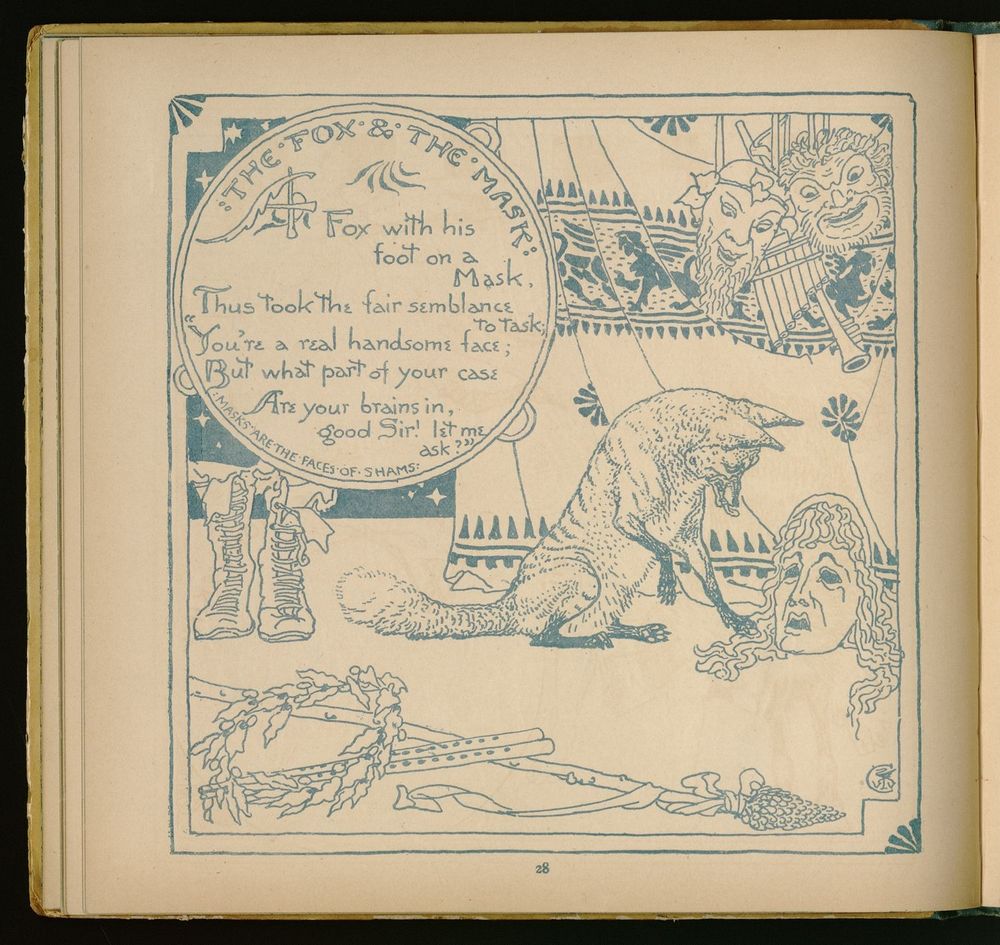 THE·FOX·&·THE·MASK:
A Fox with his
foot on a
Mask,
Thus took the fair semblance
to task;
"You're a real handsome face;
But what part of your case
Are your brains in,
good Sir! let me
ask?"
·MASKS·ARE·THE·FACES·OF·SHAMS:
28